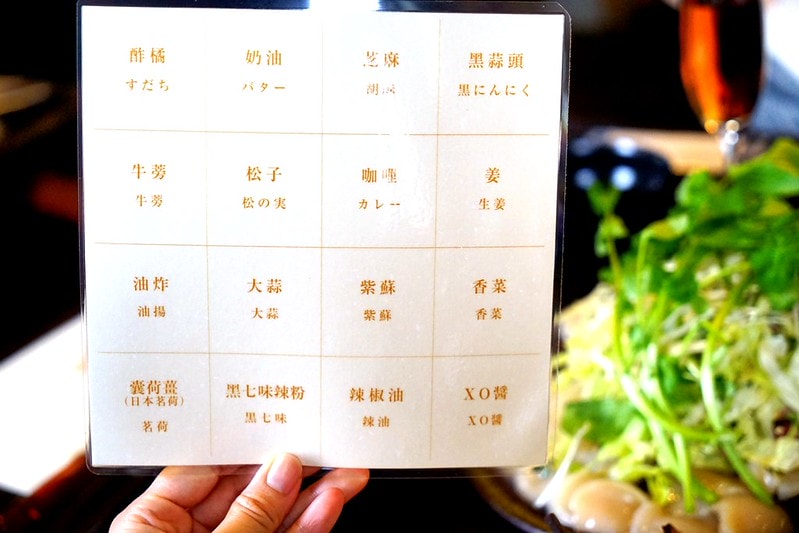 酢橘
すだち
奶油
バター
芝麻
胡麻
黑蒜頭
黒にんにく
牛蒡
牛蒡
松子
松の実
咖哩
カレー
姜
生姜
油炸
油揚
大蒜
大蒜
紫蘇
紫蘇
香菜
香菜
囊荷薑
(日本茗荷)
茗荷
黑七味辣粉
黒七味
辣椒油
辣油
XO醬
XO醬